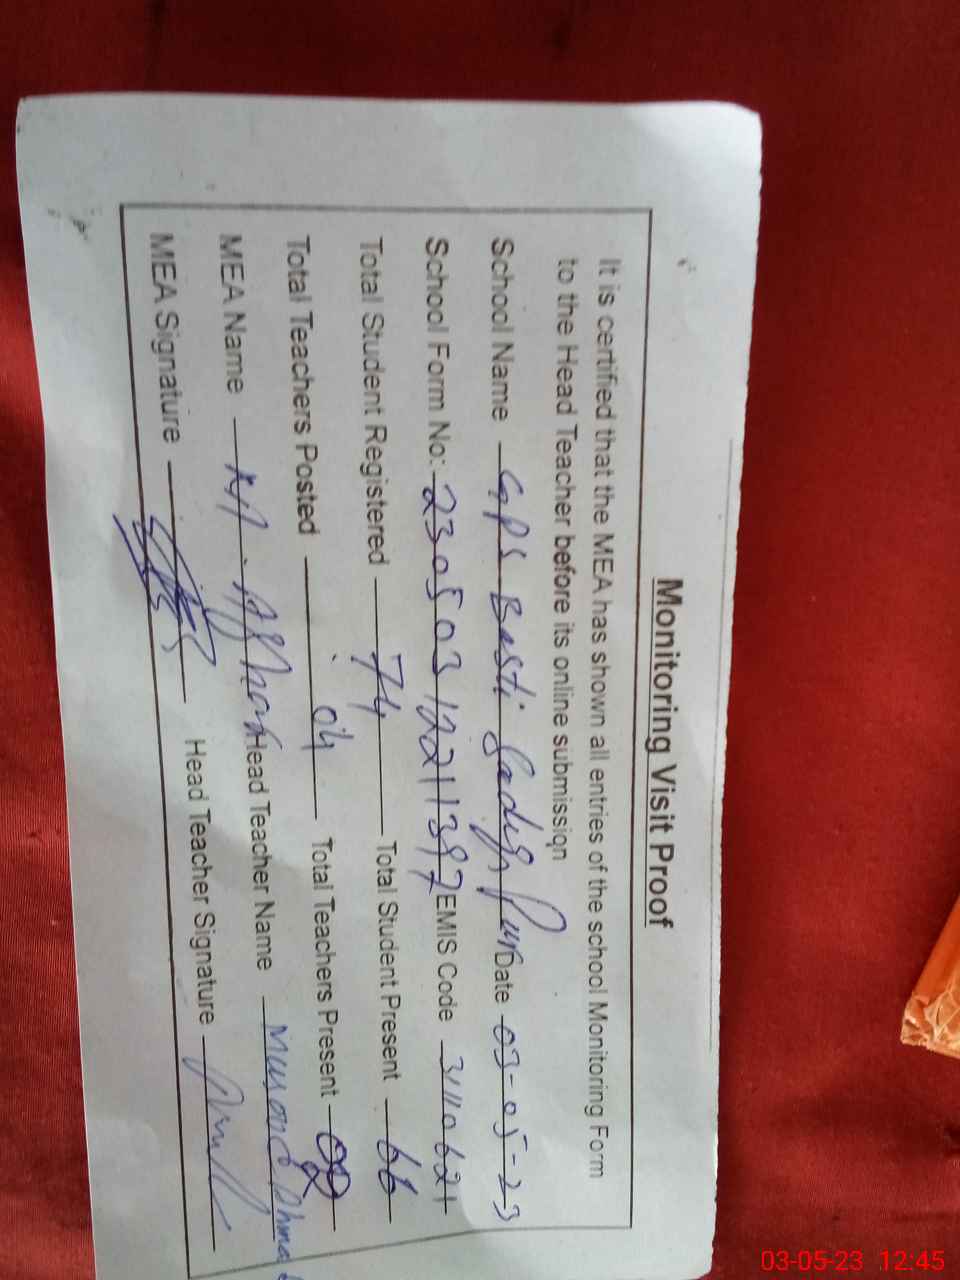 Monitoring Visit Proof
It is certified that the MEA has shown all entries of the school Monitoring Form
to the Head Teacher before its online submission
School Name GPS Basti Sadiq Pur Date 03-05-23
School Form No: 23050312211397 EMIS Code 31110621
Total Student Registered 74 Total Student Present 66
Total Teachers Posted 04 Total Teachers Present
MEA Name Head Teacher Name
MEA Signature Head Teacher Signature
03-05-23 12:45